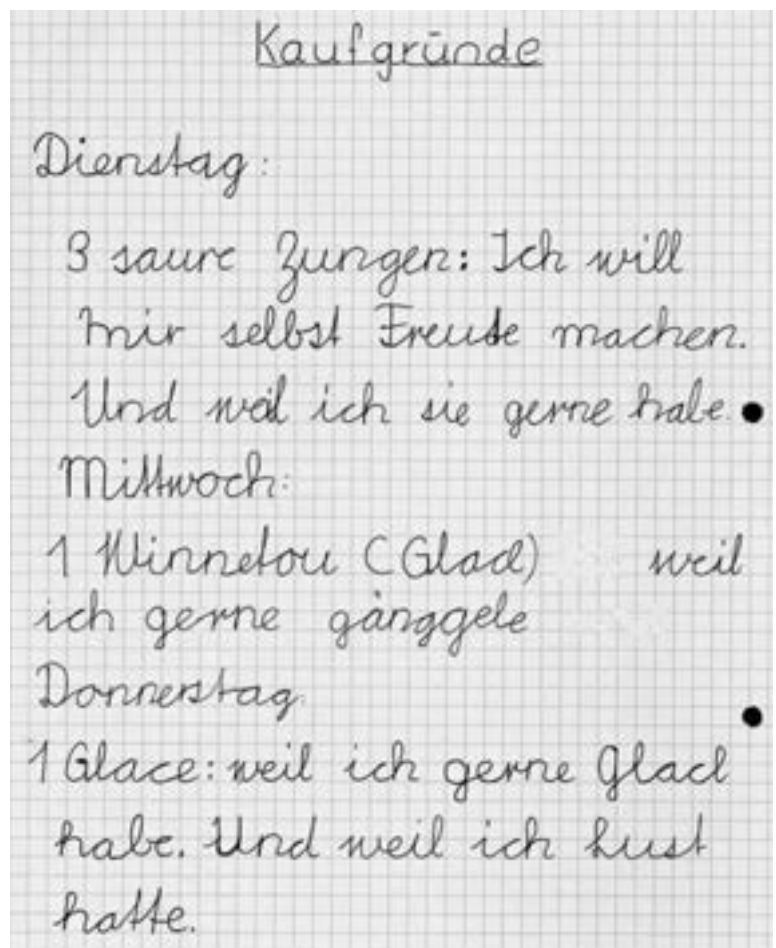 Kaufgründe
Dienstag:
3 saure Zungen: Ich will
mir selbst Freude machen.
Und weil ich sie gerne habe.
Mittwoch:
1 Winnetou (Glacé) weil
ich gerne gänggele
Donnerstag
1 Glace: weil ich gerne Glacé
habe. Und weil ich Lust
hatte.